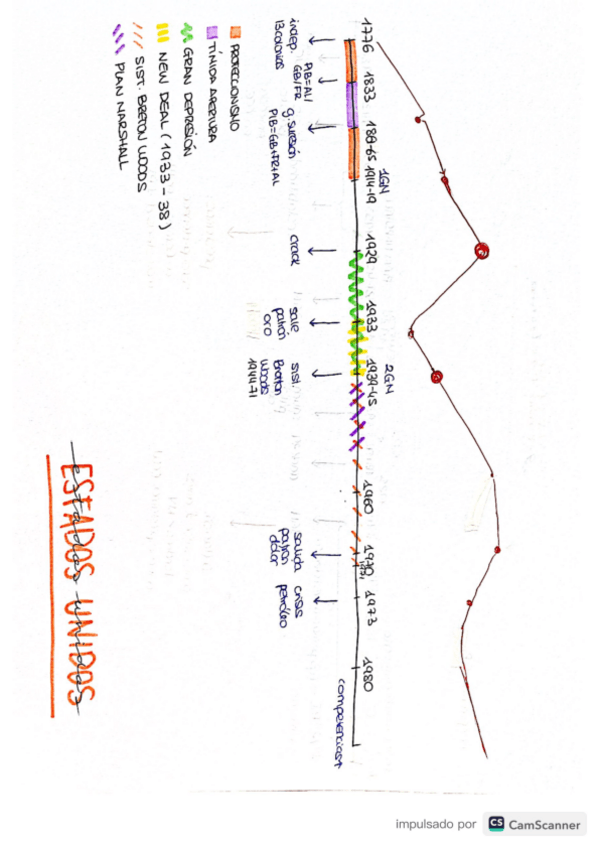 estados unidos
ESTADOS UNIDOS
1GN
2GN
1776
1833
1861-65
1914-19
1929
1933
1939-45
1960
1970
1971
1973
1980
indep.
13 colonias
PIB=AL/
GB/FR
g. sucesión
PIB=GB+FR+AL
crack
sale
patrón
oro
sist.
Bretton
Woods
1944-71
salida
patrón
dólar
crisis
petróleo
competencias
PROTECCIONISMO
TÍMIDA APERTURA
GRAN DEPRESIÓN
NEW DEAL (1933-38)
SIST. BRETON WOODS
PLAN MARSHALL
impulsado por CS CamScanner